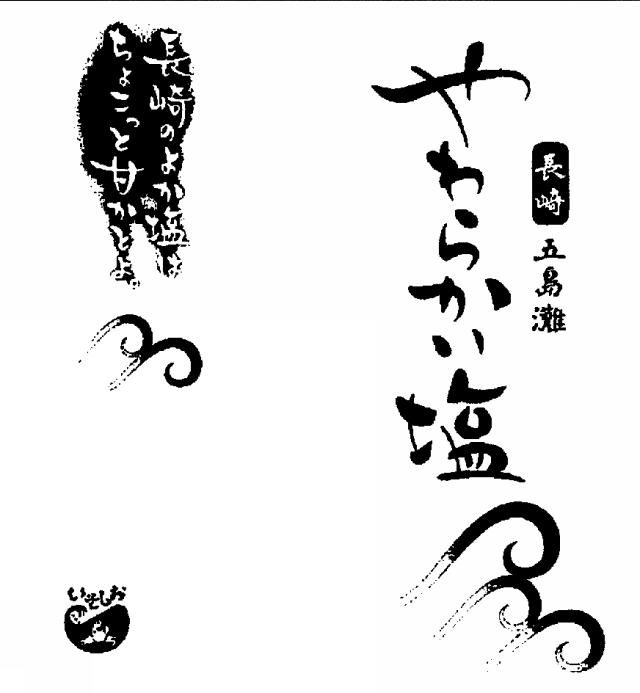 長崎
五島灘
やわらかい塩
長崎のよか塩は
ちょこっと甘かとよ。
いそしお